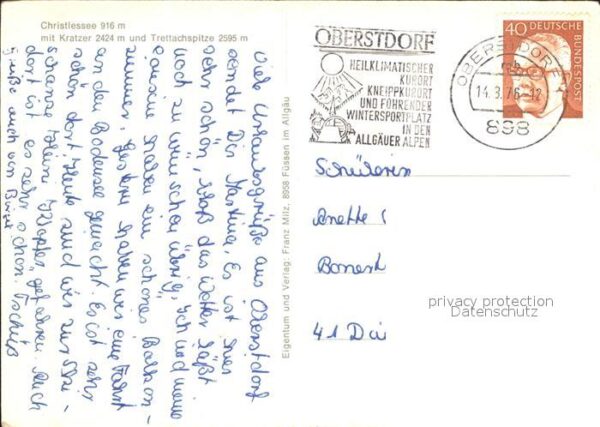 Christlessee 916 m
mit Kratzer 2424 m und Trettachspitze 2595 m
Viele Urlaubsgrüße aus Oberstdorf
sendet Dir Martina. Es ist hier
sehr schön, bloß das Wetter läßt
noch zu wünschen übrig. Ich und meine
Cousine haben ein schönes Balkon-
zimmer. Gestern haben wir eine Fahrt
an den Bodensee gemacht. Es ist sehr
schön dort. Heute sind wir zur Ski-
schanze kleine gefahren. Auch
dort ist es sehr schön. Tschüß
Grüße auch von
Eigentum und Verlag: Franz Milz, 8958 Füssen im Allgäu
OBERSTDORF
HEILKLIMATISCHER
KURORT
KNEIPPKURORT
UND FÜHRENDER
WINTERSPORTPLATZ
IN DEN
ALLGÄUER ALPEN
OBERSTDORF 1
14.3.76-12
898
40 DEUTSCHE
BUNDESPOST
Schülerin
Anette
41 Dui
privacy protection
Datenschutz